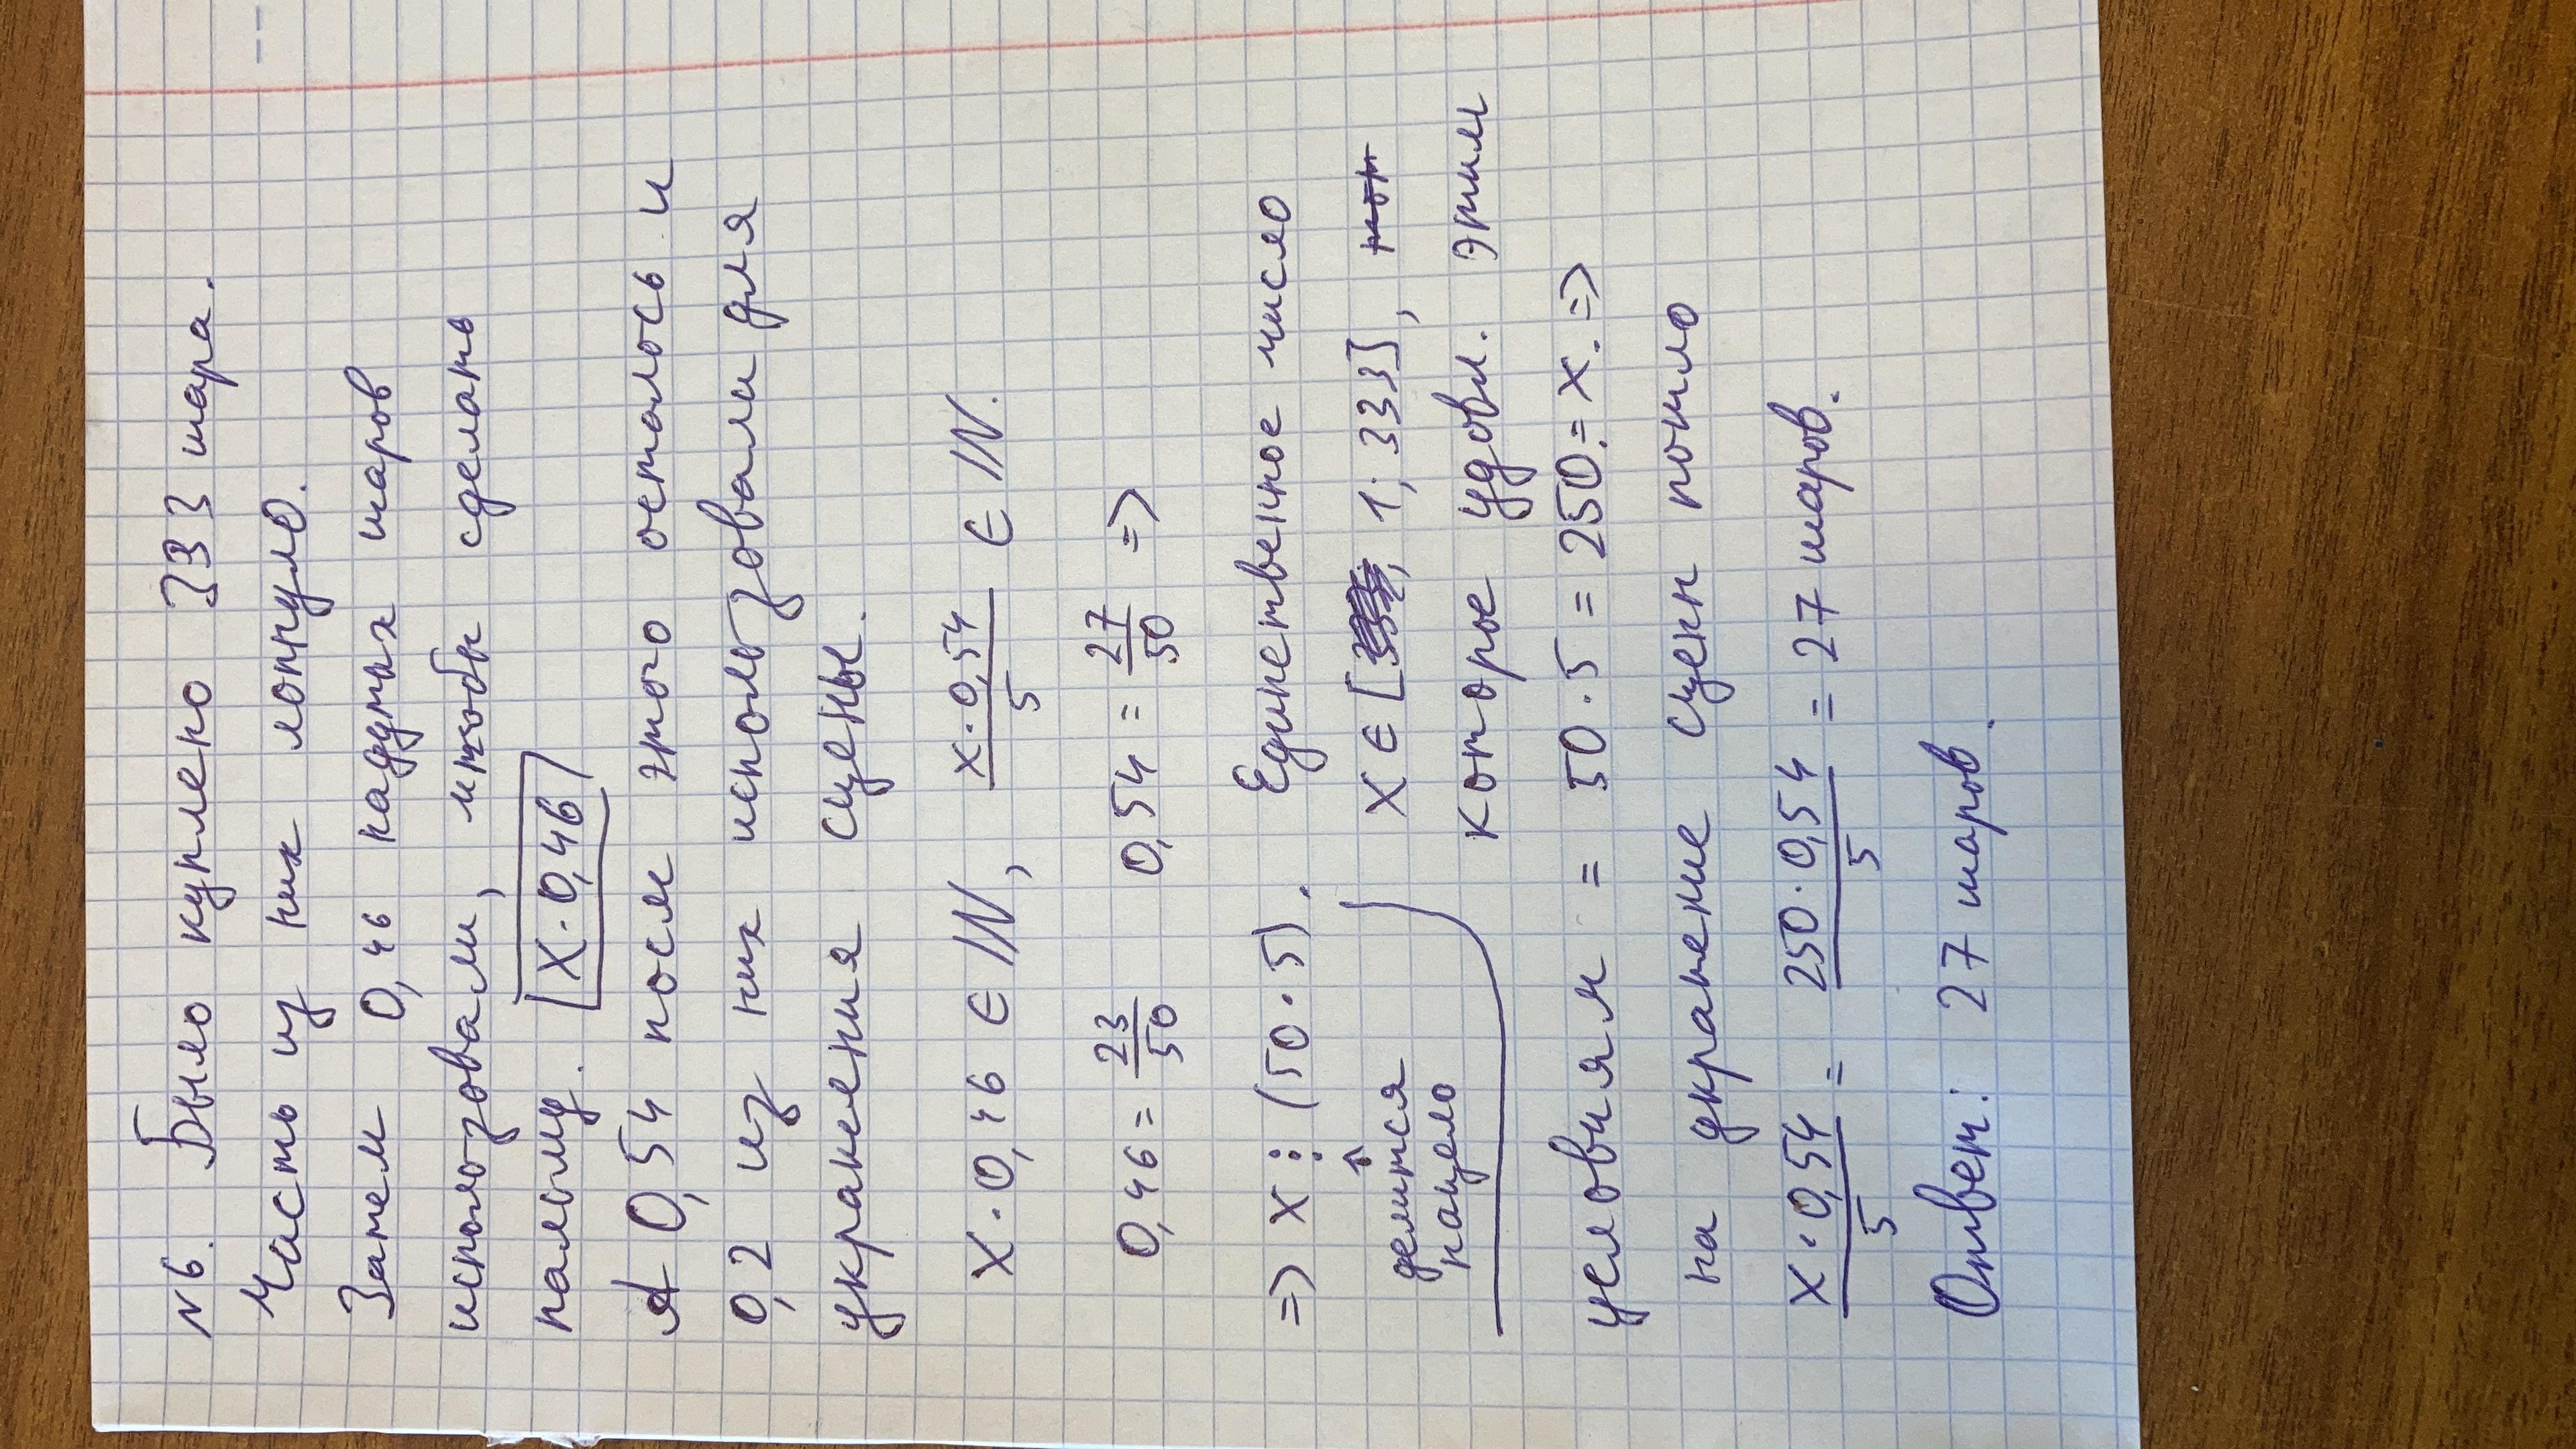 №6. Было куплено 333 шара.
Часть из них лопнуло.
Затем 0,46 надутых шаров
использовали, чтобы сделать
пальму. [X·0,46]
А 0,54 после этого осталось и
0,2 из них использовали для
украшения сцены.
X·0,46 ∈ ℕ, x·0,54/5 ∈ ℕ.
0,46 = 23/50 0,54 = 27/50 =>
=> X ⋮ (50·5). Единственное число
↑
делится
нацело
X ∈ [1; 333],
которое удовл. этим
условиям = 50·5 = 250 = X. =>
на украшение сцены пошло
X·0,54/5 = 250·0,54/5 = 27 шаров.
Ответ: 27 шаров.